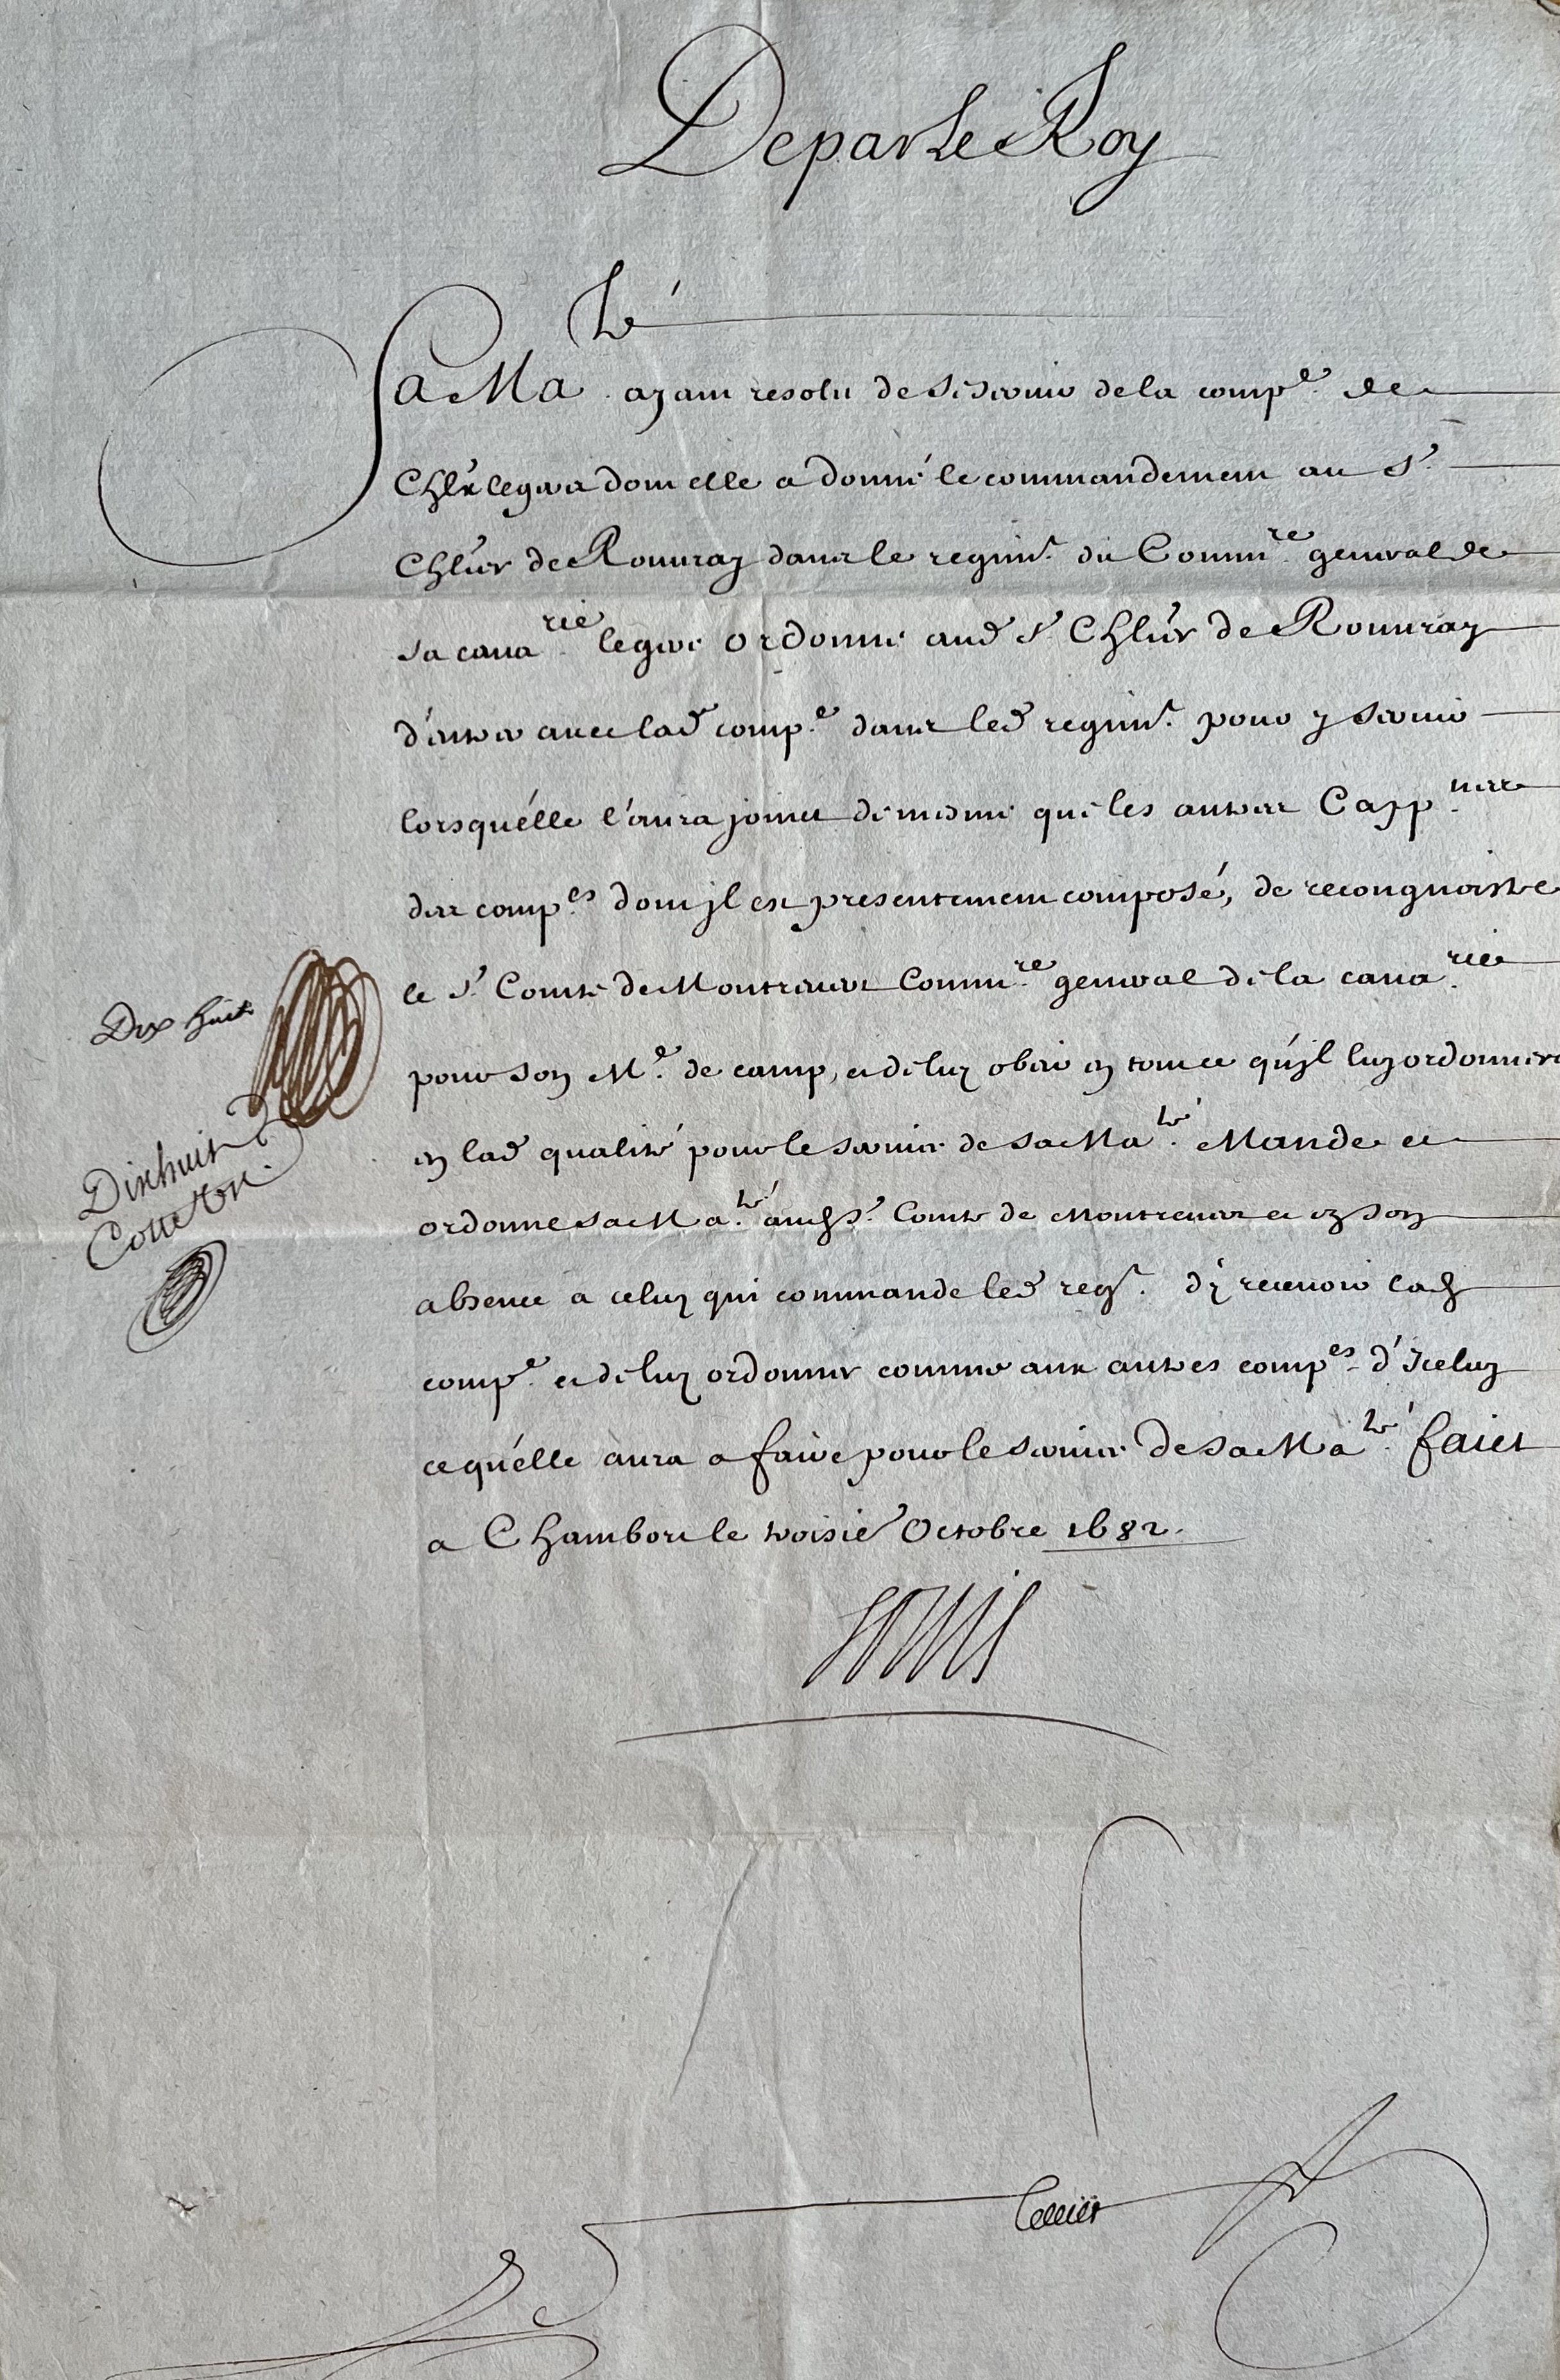 De par Le Roy
Sa Ma.té ayant resolu de se servir de la comp.e de
Ch.x legers dont elle a donné le commandement au S.r
Chlier de Rouuray dans le regim.t du Comm.re general de
sa caua.rie legere ordonne aud S.r Chlier de Rouuray
d'entrer auec lad comp.e dans led regim.t pour y seruir
lorsqu'elle l'aura joinct de mesme que les autres Capp.nes
des comp.es dont jl est presentement composé, de recongnoistre
le S.r Comte de Montreuer Comm.re general de la caua.rie
pour son M.e de camp, et de luy obeir en tout ce qu'jl luy ordonnera
en lad qualité pour le seruice de sa Ma.té Mande et
ordonne sa Ma.té aud S.r Comte de Montreuer et en son
absence a celuy qui commande led reg.t d'y receuoir lad
comp.e et de luy ordonner comme aux autres comp.es d'Iceluy
ce qu'elle aura a faire pour le seruice de sa Ma.té faict
a Chambort le troisie Octobre 1682.
Dix huit
Dixhuit
Cotteron
Louis
Le Tellier